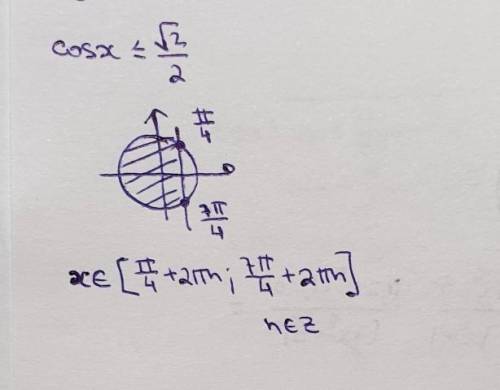 cosx ≤ √2/2
π/4
0
7π/4
x∈[π/4+2πn; 7π/4+2πn]
n∈Z